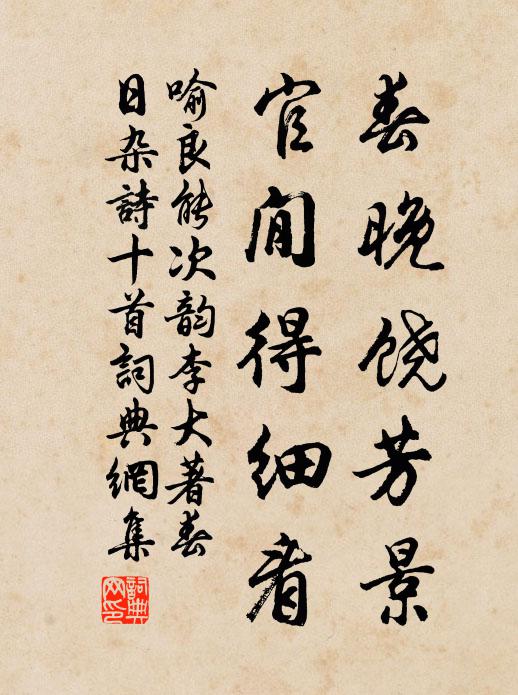 春晚饶芳景
官闲得细看
喻良能次韵李大著春
日杂詩十首詞典網集
詞典
网印